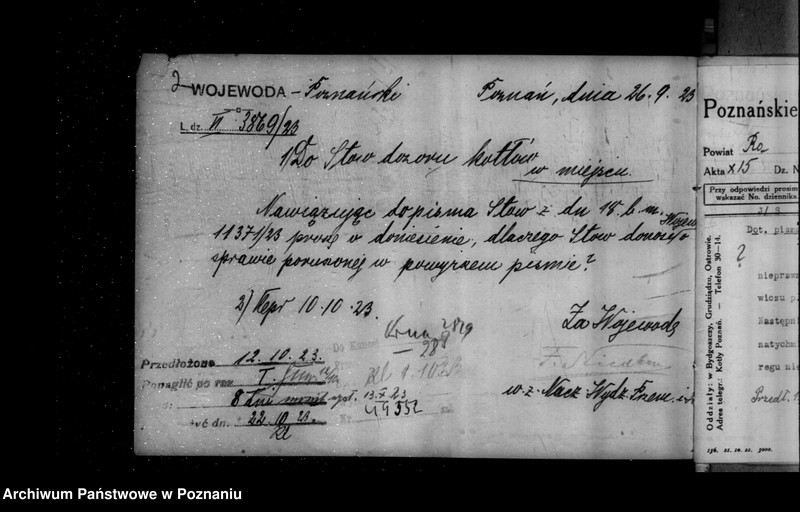 2
WOJEWODA - Poznański
Poznań, dnia 26.9. 23
L. dz. VI 3869/23
1) Do Stow dozoru kotłów
w miejscu.
Nawiązując do pisma Stow z dn 18 b. m.
11371/23 proszę o doniesienie, dlaczego Stow donosi o
sprawie poruszonej w powyższem piśmie?
2) Kepr 10.10.23.
Za Wojewodę
Przedłożono 12.10.23.
Ponaglić po raz I.
8 dni monit
13.X 23
22.10.23.
w. z. Nacz Wydz Przem.
Poznańskie
Powiat Ra
Akta X 15 Dz. N
Przy odpowiedzi prosim
wskazać No. dziennika.
Dot. pism
?
nieprawn
wiozu p
Następni
natychm
regu nie
Przedł.
Oddziały: w Bydgoszczy, Grudziądzu, Ostrowie.
Adres telegr.: Kotły Poznań. — Telefon 30-14.
Archiwum Państwowe w Poznaniu